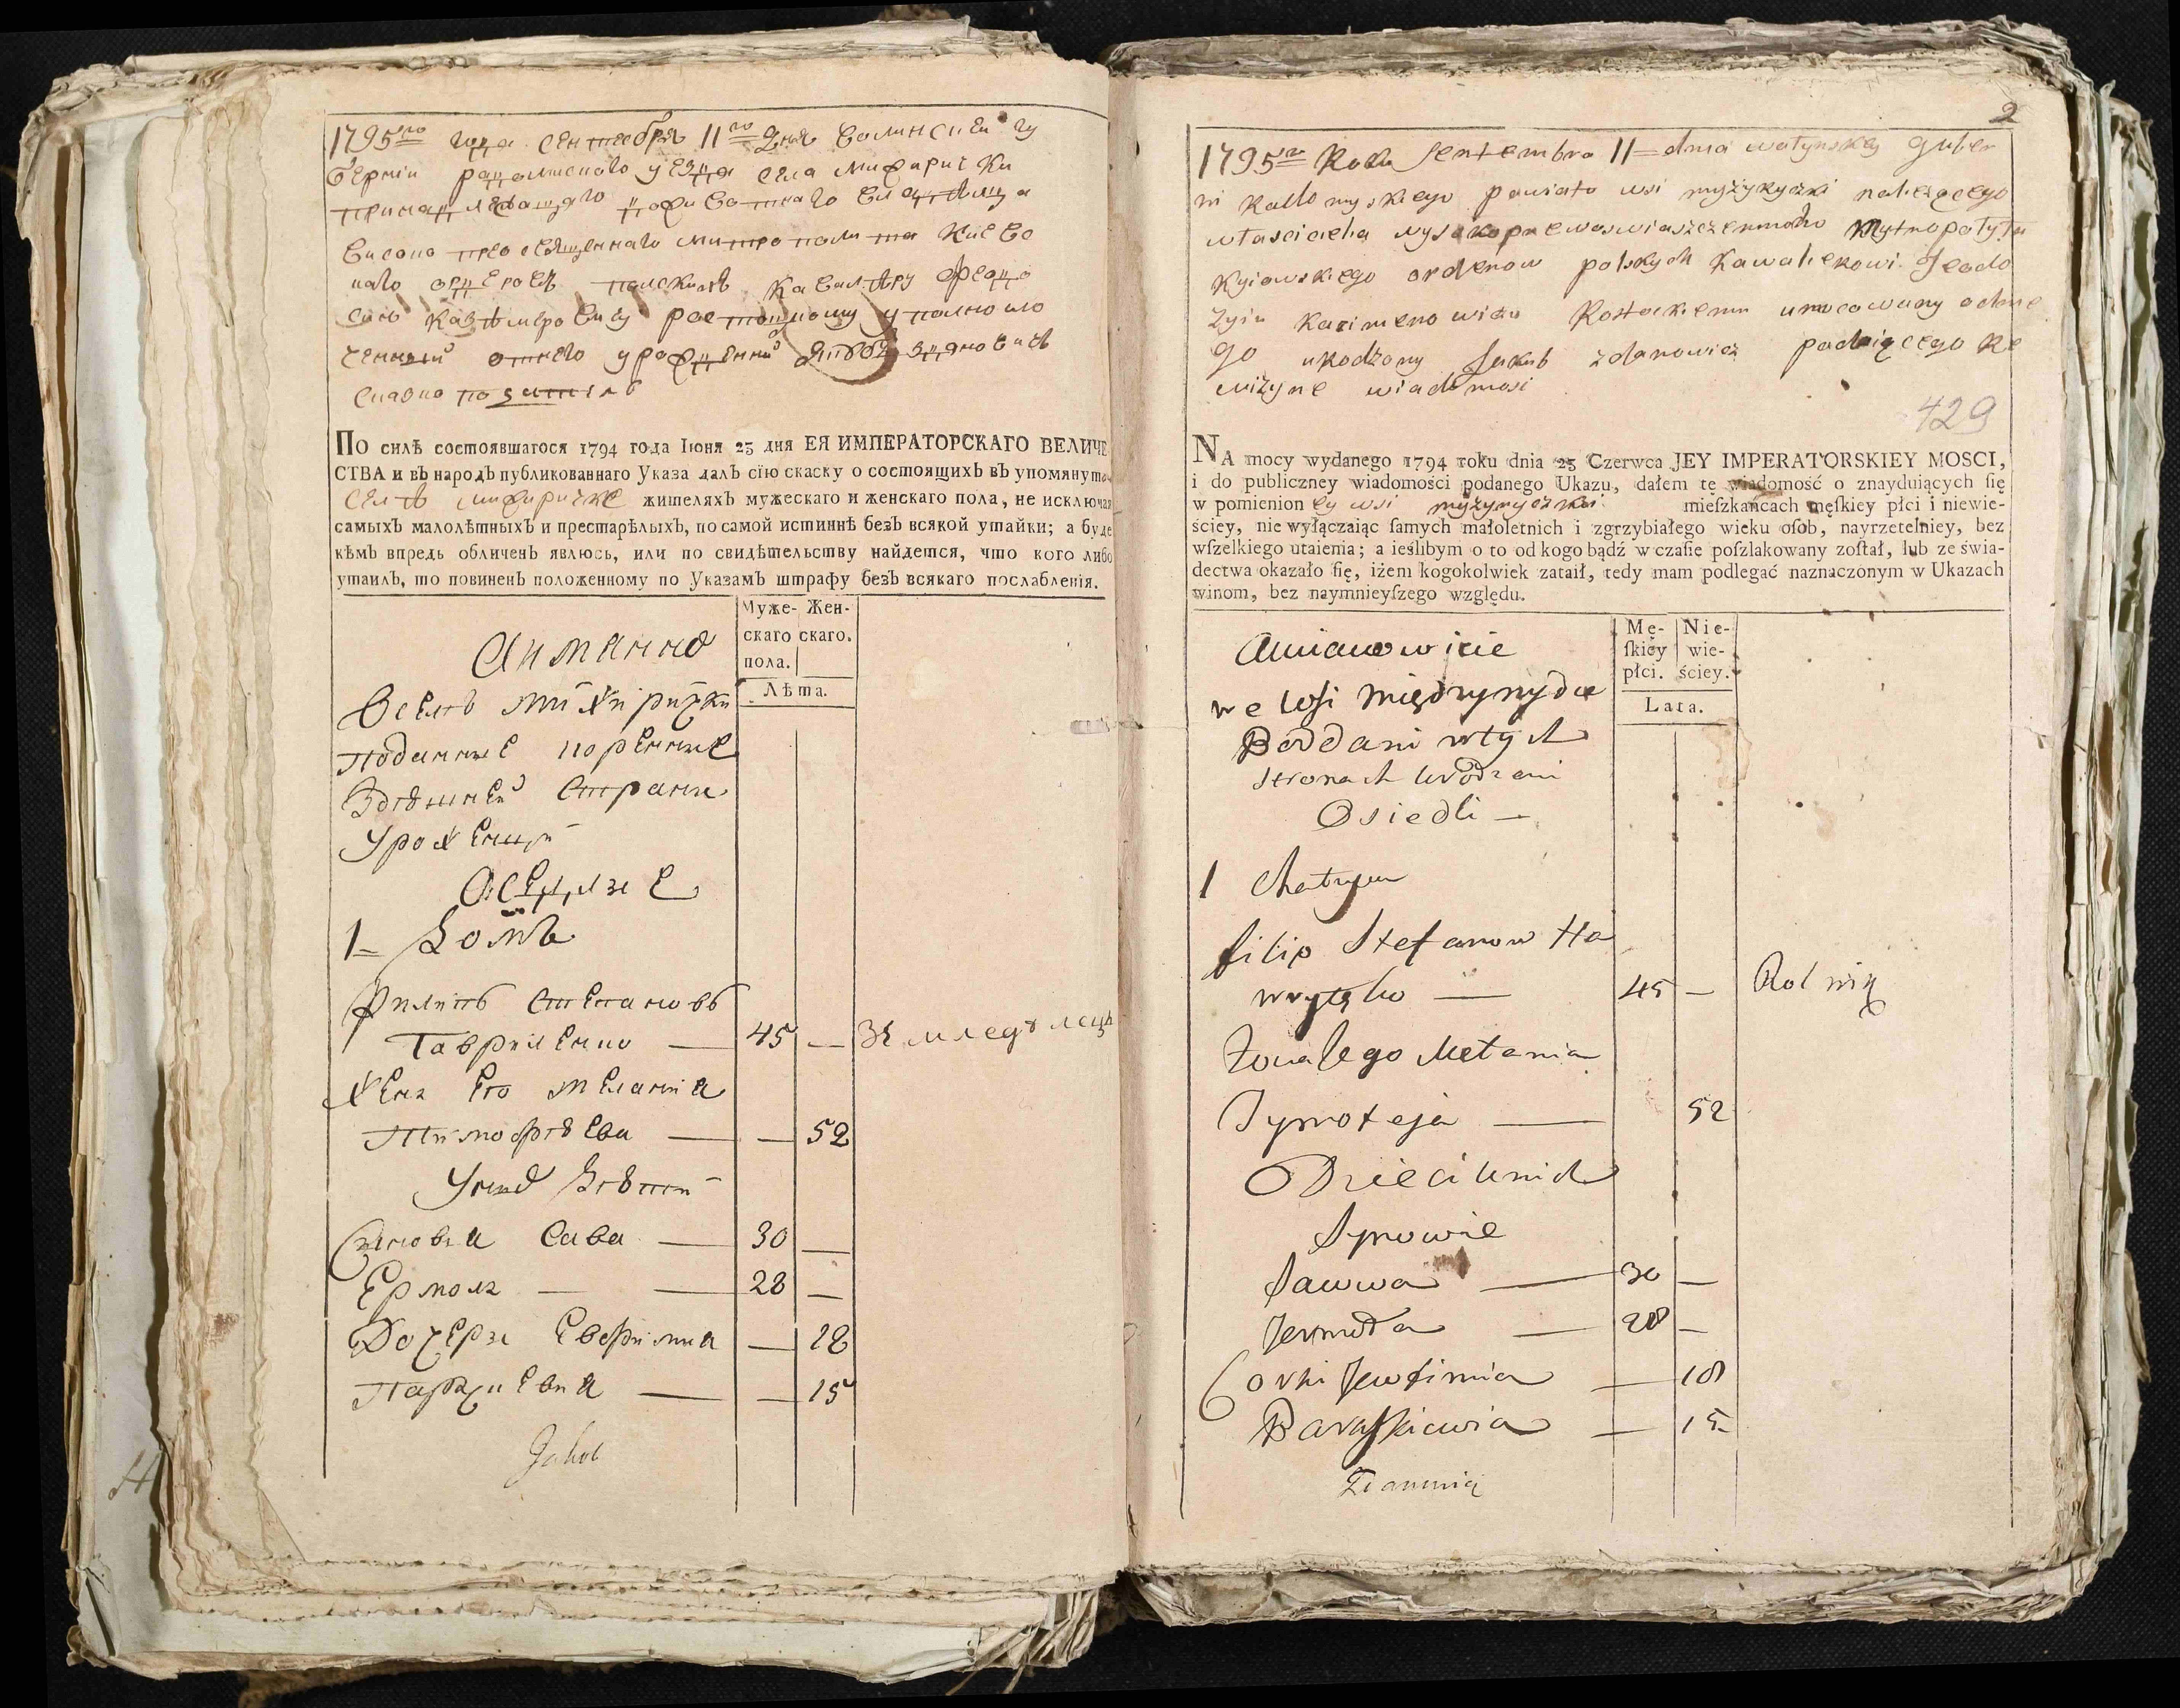 1795го года Сентебря 11го дня Волинской гу
берніи радомисского уезда села Мижирички
принадлежащаго
високо преосвященнаго митрополита Киевс
каго орденовъ полскихъ Кавалѣру Феодо
сию Казѣмѣровичу Ростоцкому уполномо
ченный отнего урожденній Якубъ Здановичъ
По силѣ состоявшагося 1794 года Іюня 23 дня ЕЯ ИМПЕРАТОРСКАГО ВЕЛИЧЕ
СТВА и въ народъ публикованнаго Указа далъ сїю скаску о состоящихъ въ упомянутом
селѣ мижиричке жителяхъ мужескаго и женскаго пола, не исключая
самыхъ малолѣтныхъ и престарѣлыхъ, по самой истиннѣ безъ всякой утайки; а буде
кѣмъ впредь обличенъ явлюсь, или по свидѣтельству найдется, что кого либо
утаилъ, то повиненъ положенному по Указамъ штрафу безъ всякаго послабленія.
Муже- Жен-
скаго скаго.
пола.
Лѣта.
Аимянно
Вселѣ Мижиричкы
Поданные коренные
Здѣшней Страны
Уроженци
Оседлые
1 Домъ
Филипъ Степановъ
Гавриленко — 45 — земледѣлецъ
Жена его Меланія
Тимофѣева — — 52
Унихъ Дѣти
Сыновья Сава — 30 —
Ермола — — 28 —
Дочеры Евфимия — 18
Параскевия — — 15
Jakob
2
1795го Roku Sentembra 11 dnia wołynskey guber
ni Radomyskiego powiatu wsi myżyryczki należącego
własciciela wysokoprewoswiaszczennoho Mytropolytu
Kyiowskiego orderow polskych Kawalerowi Feodo
zyiu Kazimerowiczu Rostockiemu umocowany odnie
go urodzony Jakub zdanowicz podaię cego re
wizyne wiadomosi
429
NA mocy wydanego 1794 roku dnia 23 Czerwca JEY IMPERATORSKIEY MOSCI,
i do publiczney wiadomości podanego Ukazu, dałem tę wiadomość o znayduiących ſię
w pomienioney wsi myżyryczkii mieſzkańcach męſkiey płci i niewie-
ściey, nie wyłączaiąc ſamych małoletnich i zgrzybiałego wieku oſob, nayrzetelniey, bez
wſzelkiego utaienia; a ieślibym o to od kogo bądź w czaſie poſzlakowany zoſtał, lub ze świa-
dectwa okazało ſię, iżem kogokolwiek zataił, tedy mam podlegać naznaczonym w Ukazach
winom, bez naymnieyſzego względu.
Mę- Nie-
ſkiey wie-
płci. ściey.
Lata.
Amianowicie
we Wsi Międzyrydce
Poddani wtych
stronach Urodzeni
Osiedli —
1 Chatyna
filip Stefanow Ha
wryłęko — 45 — Rolnik
Zona Jego Mełania
Tymoteja — 52
Dzieci Unich
Synowie
Sawwa — 30 —
Jermoła — 28 —
Corki Jewfimia — 18
Paraskiewia — 15